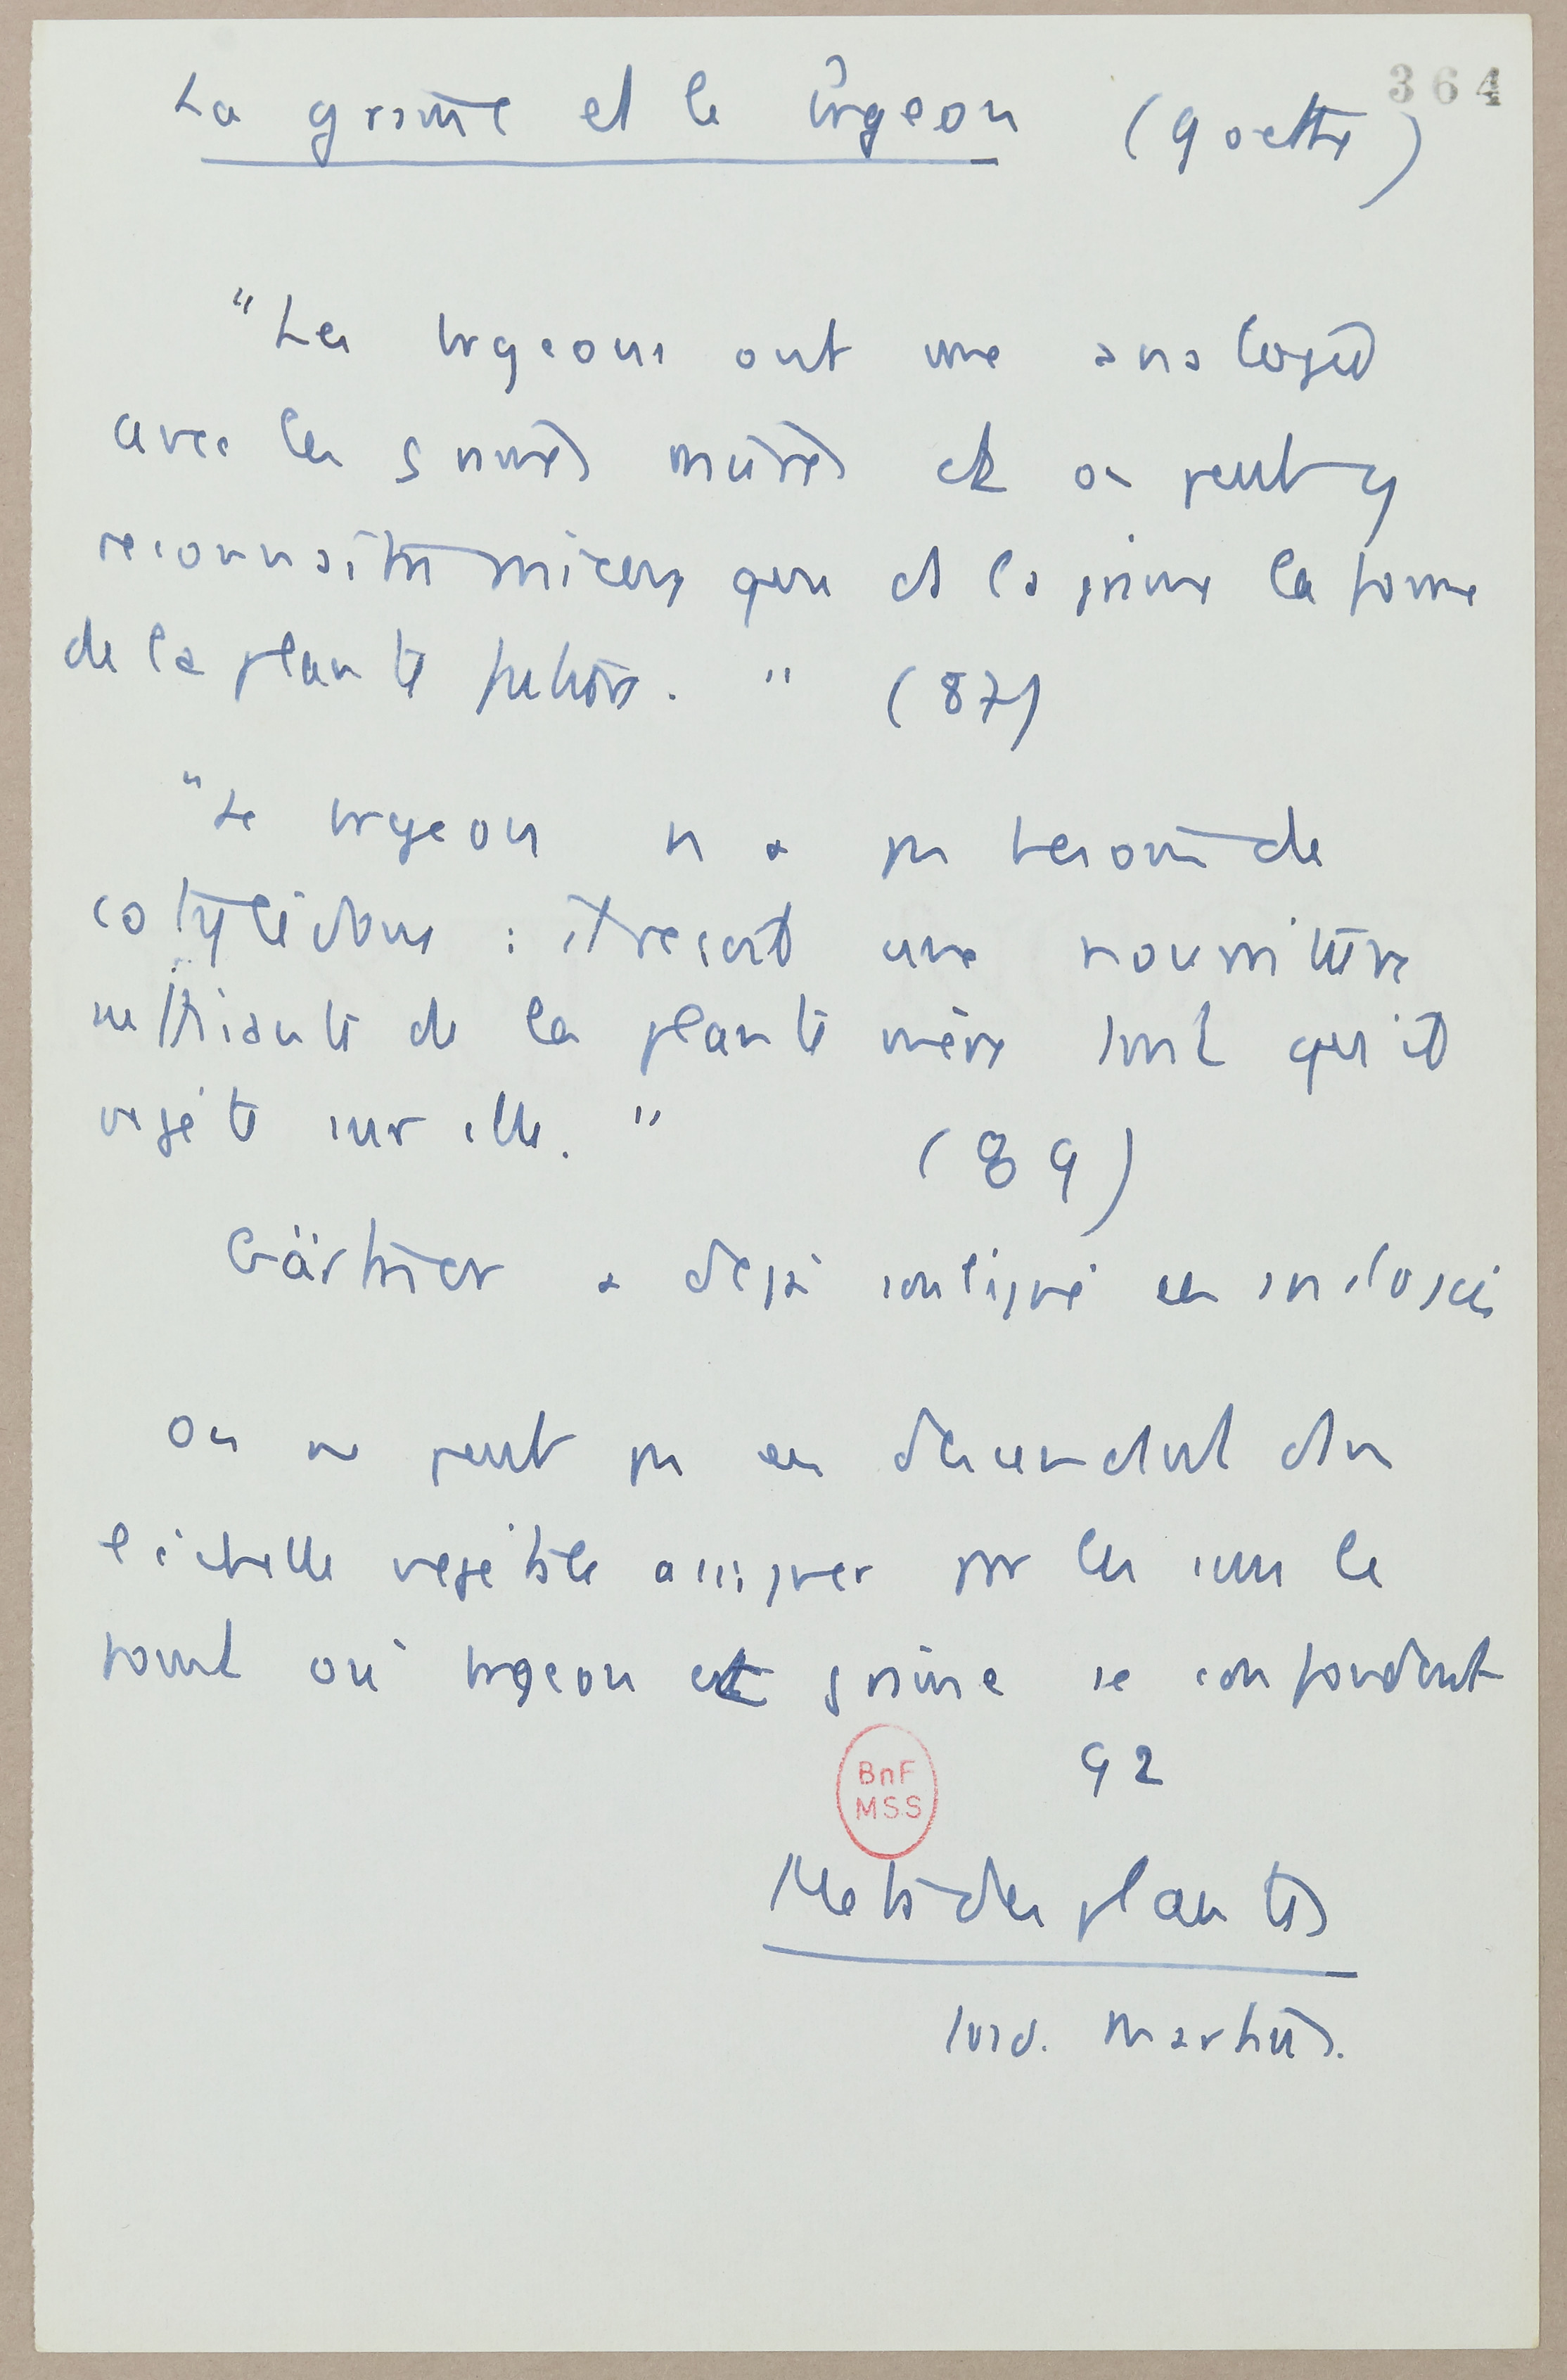 364
La graine et le bourgeon (Goethe)
"Les bourgeons ont une analogie
avec les graines mûres et on peut y
reconnaître mieux que ds la graine la forme
de la plante future." (87)
"Le bourgeon n'a pas besoin de
cotylédons : il reçoit une nourriture
suffisante de la plante mère tant qu'il
végète sur elle." (89)
Gärtner a déjà souligné ces analogies
On ne peut pas en descendant dans
l'échelle végétale assigner par les sens le
point où bourgeon et graine se confondent
92
BnF
MSS
Meta des plantes
trad. Martins.